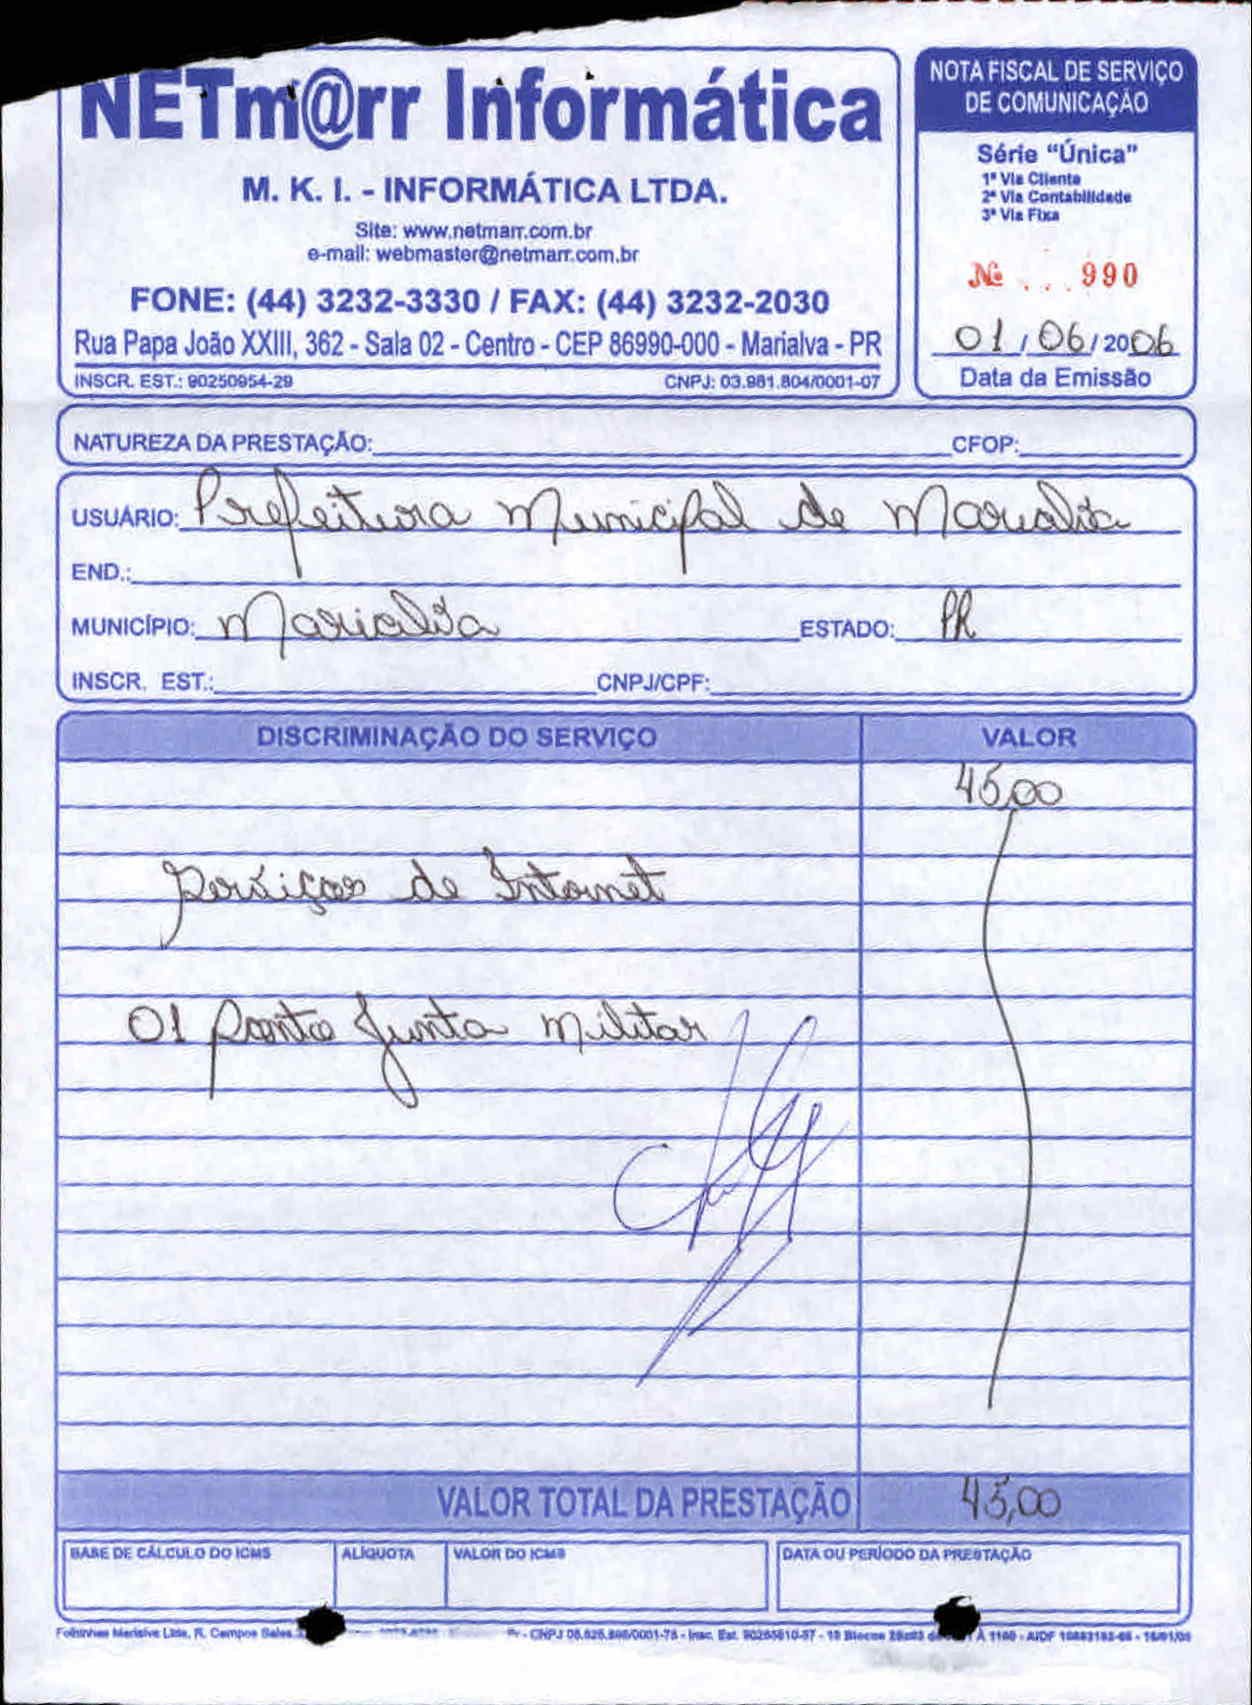 NETm@rr Informática
M. K. I. - INFORMÁTICA LTDA.
Site: www.netmarr.com.br
e-mail: webmaster@netmarr.com.br
FONE: (44) 3232-3330 / FAX: (44) 3232-2030
Rua Papa João XXIII, 362 - Sala 02 - Centro - CEP 86990-000 - Marialva - PR
INSCR. EST.: 90250954-29 CNPJ: 03.981.804/0001-07
NOTA FISCAL DE SERVIÇO
DE COMUNICAÇÃO
Série "Única"
1ª Via Cliente
2ª Via Contabilidade
3ª Via Fixa
Nº 990
01/06/2006
Data da Emissão
NATUREZA DA PRESTAÇÃO: CFOP:
USUÁRIO: Prefeitura Municipal de Marialva
END.:
MUNICÍPIO: Marialva ESTADO: PR
INSCR. EST.: CNPJ/CPF:
DISCRIMINAÇÃO DO SERVIÇO VALOR
45,00
Serviços de Internet
01 Ponto Junta Militar
VALOR TOTAL DA PRESTAÇÃO 45,00
BASE DE CÁLCULO DO ICMS ALÍQUOTA VALOR DO ICMS DATA OU PERÍODO DA PRESTAÇÃO
R. Campos Sales